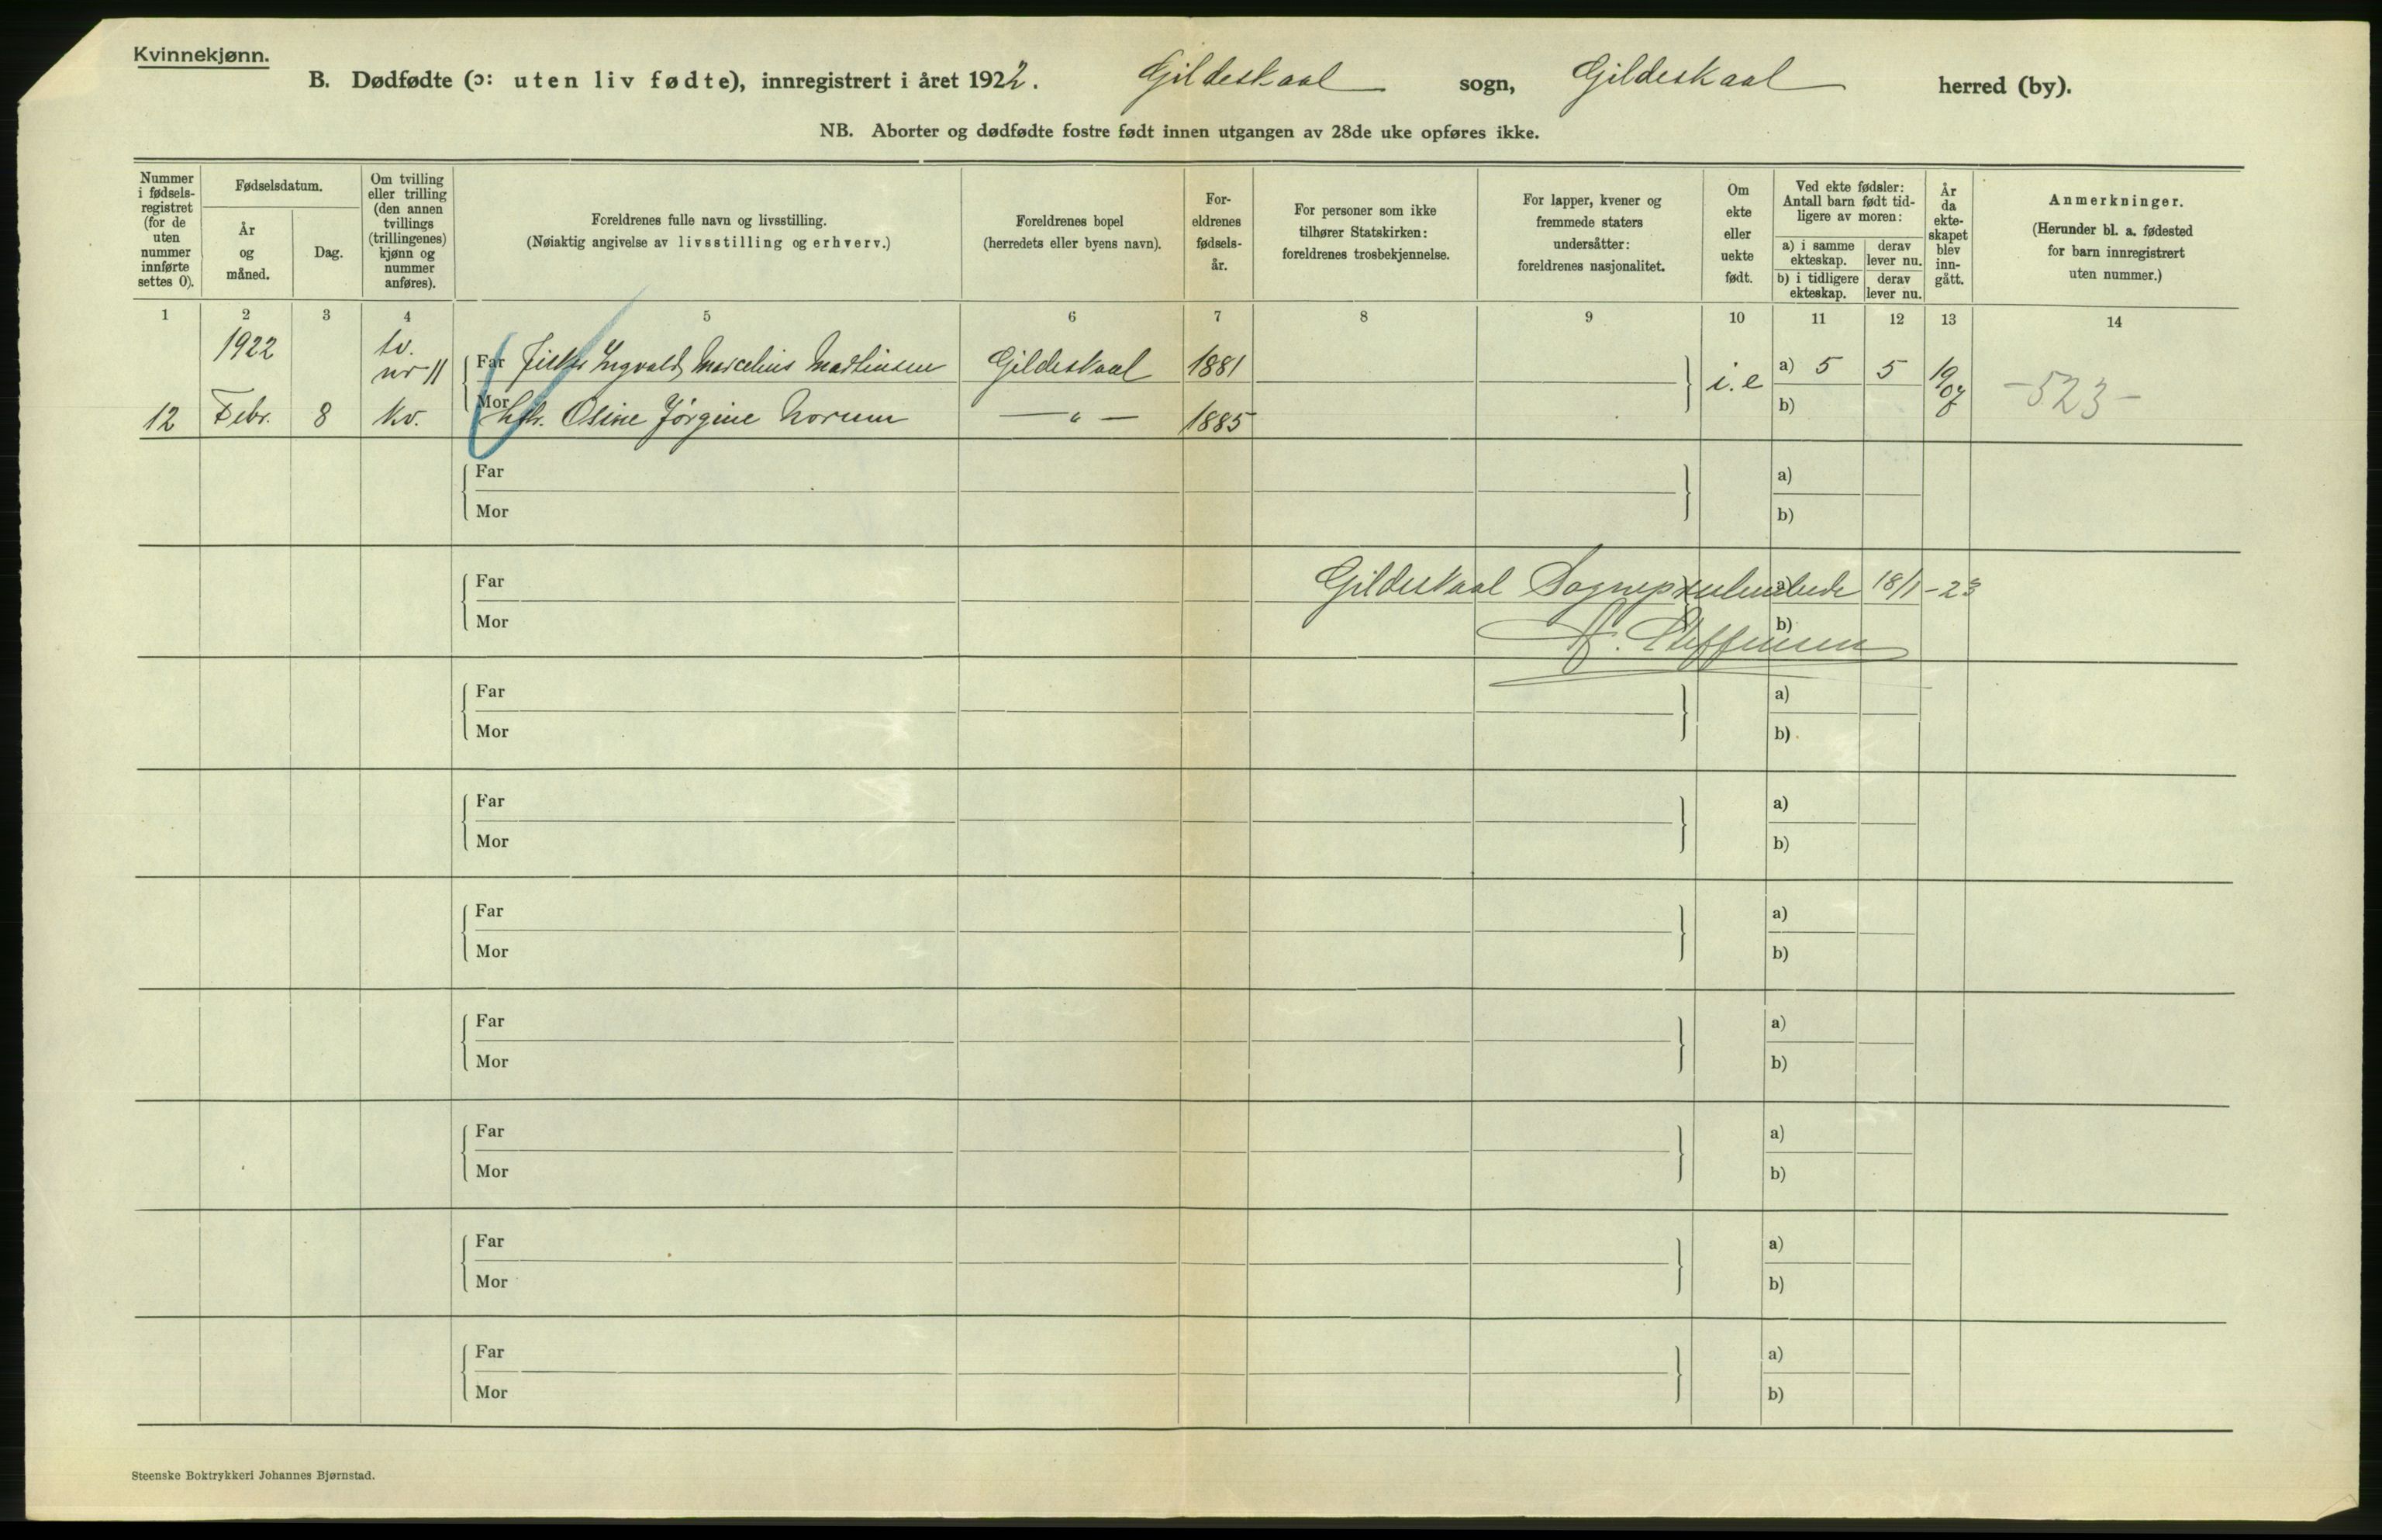 Kvinnekjønn.
B. Dødfødte (ɔ: uten liv fødte), innregistrert i året 1922. Gildeskaal sogn, Gildeskaal herred (by).
NB. Aborter og dødfødte fostre født innen utgangen av 28de uke opføres ikke.
Nummer i fødsels-registret (for de uten nummer innførte settes 0).
Fødselsdatum.
År og måned.
Dag.
Om tvilling eller trilling (den annen tvillings (trillingenes) kjønn og nummer anføres).
Foreldrenes fulle navn og livsstilling.
(Nøiaktig angivelse av livsstilling og erhverv.)
Foreldrenes bopel
(herredets eller byens navn).
For-eldrenes fødsels-år.
For personer som ikke tilhører Statskirken: foreldrenes trosbekjennelse.
For lapper, kvener og fremmede staters undersåtter: foreldrenes nasjonalitet.
Om ekte eller uekte født.
Ved ekte fødsler: Antall barn født tid-ligere av moren:
a) i samme ekteskap.
derav lever nu.
b) i tidligere ekteskap.
derav lever nu.
År da ekte-skapet blev inn-gått.
Anmerkninger.
(Herunder bl. a. fødested for barn innregistrert uten nummer.)
1 2 3 4 5 6 7 8 9 10 11 12 13 14
1922 tv.
nr 11 Far Fisker Ingvald Marcelius Martinsen Gildeskaal 1881 i.e a) 5 5 1907 -523-
12 Febr. 8 kv. Mor Osine Jørgine Norum — „ — 1885 b)
Far a)
Mor b)
Far Gildeskaal a) 18/1-23
Mor b)
Far a)
Mor b)
Far a)
Mor b)
Far a)
Mor b)
Far a)
Mor b)
Far a)
Mor b)
Far a)
Mor b)
Far a)
Mor b)
Steenske Boktrykkeri Johannes Bjørnstad.